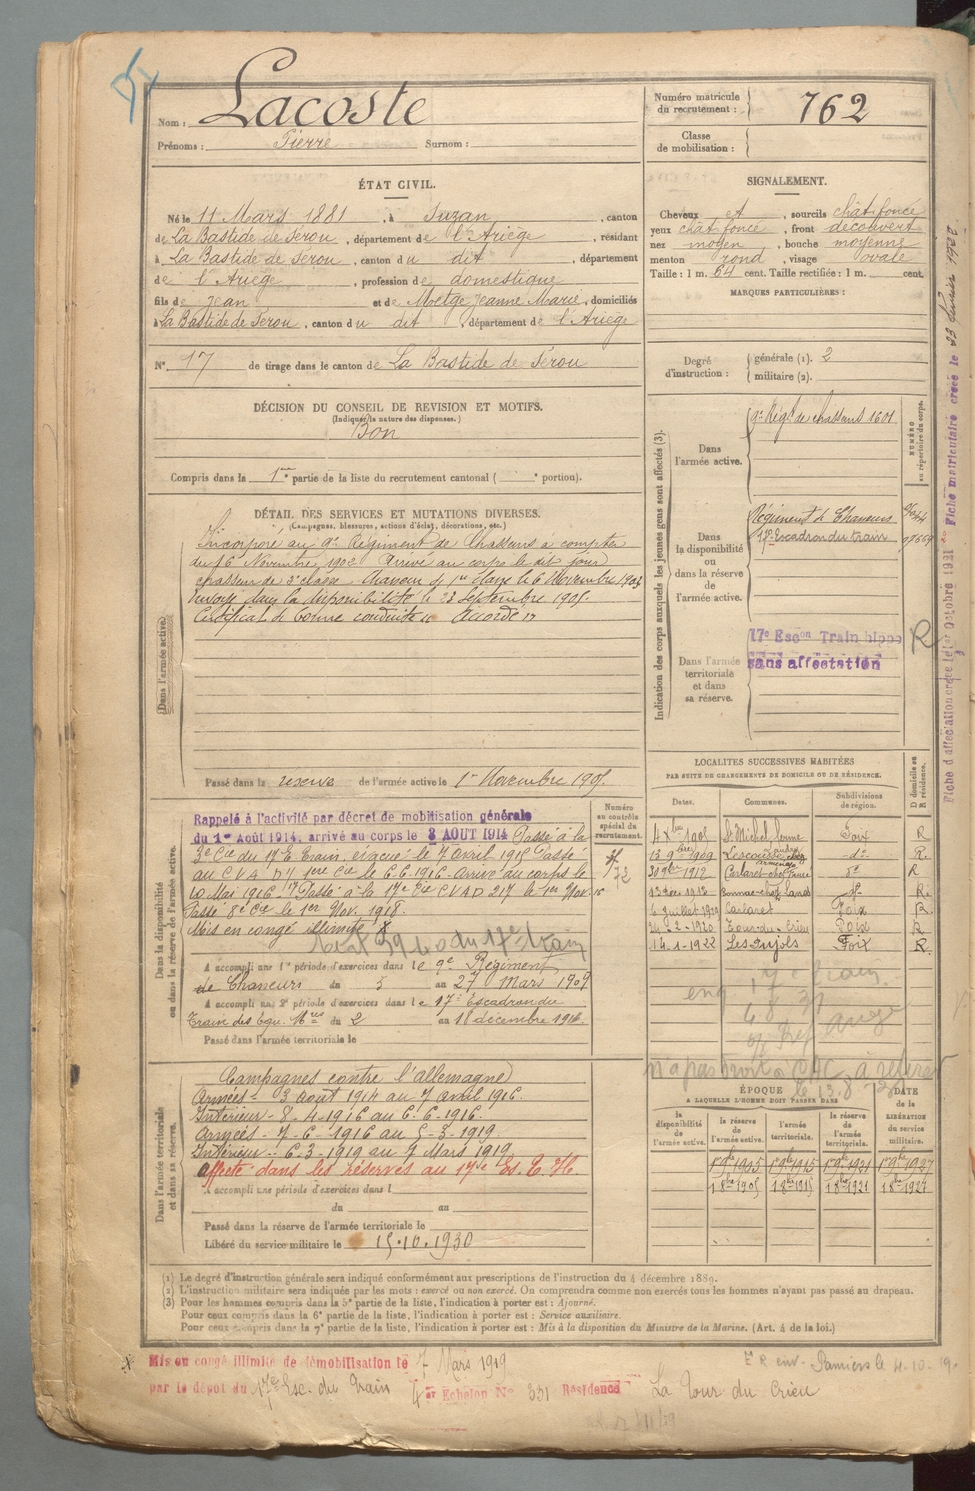 Nom : Lacoste
Prénoms : Pierre Surnom :
Numéro matricule du recrutement : 762
Classe de mobilisation :
ÉTAT CIVIL.
Né le 11 Mars 1881, à Suzan, canton
de La Bastide de Sérou, département de l'Ariège, résidant
à La Bastide de Sérou, canton du dit, département
de l'Ariège, profession de domestique
fils de Jean et de Metge Jeanne Marie, domiciliés
à La Bastide de Sérou, canton du dit, département de l'Ariège
N° 17 de tirage dans le canton de La Bastide de Sérou
SIGNALEMENT.
Cheveux et, sourcils chat foncé
yeux chat foncé, front découvert
nez moyen, bouche moyenne
menton rond, visage ovale
Taille : 1 m. 64 cent. Taille rectifiée : 1 m. cent.
MARQUES PARTICULIÈRES :
Degré d'instruction : générale (1). 2
militaire (2).
DÉCISION DU CONSEIL DE REVISION ET MOTIFS.
(Indiquer la nature des dispenses.)
Bon
Compris dans la 1re partie de la liste du recrutement cantonal ( e portion).
DÉTAIL DES SERVICES ET MUTATIONS DIVERSES.
(Campagnes, blessures, actions d'éclat, décorations, etc.)
Dans l'armée active.
Incorporé au 9e Régiment de Chasseurs à compter
du 16 Novembre 1902 Arrivé au corps le dit jour
chasseur de 2e classe
envoyé dans la disponibilité le 23 Septembre 1905.
Certificat de bonne conduite Accordé
Passé dans la réserve de l'armée active le 1er Novembre 1905
Indication des corps auxquels les jeunes gens sont affectés (3).
NUMÉRO au répertoire du corps.
Dans l'armée active. 9e Régt de chasseurs 1601
Dans la disponibilité ou dans la réserve de l'armée active.
Régiment de Chasseurs
17e Escadron du train
Dans l'armée territoriale et dans sa réserve.
17e Escon Train hippo
sans affectation
R
Fiche d'affectation créée le 1er Octobre 1921 Fiche matriculaire créée le 23 février 1922
Dans la disponibilité ou dans la réserve de l'armée active.
Numéro au contrôle spécial du recrutement.
Rappelé à l'activité par décret de mobilisation générale
du 1er Août 1914, arrivé au corps le 3 AOUT 1914 Passé à la
3e Cie du 17e E. Train, évacué le 7 avril 1915 Passé
au CVAD 17 1ere Cie le 6.6.1916. Arrivé au corps le
10 Mai 1916. Passé à la 17e Cie CVAD 217 le 1er Nov. 16
Passé 8e Cie le 1er Nov. 1918.
Mis en congé illimité X
A accompli une 1re période d'exercices dans le 9e Régiment
de Chasseurs du 5 au 27 Mars 1909
A accompli une 2e période d'exercices dans le 17e Escadron du
Train des Equ. Mres du 2 au 18 décembre 1912.
Passé dans l'armée territoriale le
LOCALITÉS SUCCESSIVES HABITÉES
PAR SUITE DE CHANGEMENTS DE DOMICILE OU DE RÉSIDENCE.
Dates. Communes. Subdivisions de région. D domicile ou R résidence.
4 Xbre 1905 St Michel ferme Foix R
13 9bre 1909 Lescousse do R.
30 9bre 1912 Carlaret do R
Bonnac do R.
6 Juillet 1919 Carlaret Foix R
24-2-1920 Tour du Crieu Foix R
14-1-1922 Les Pujols Foix R
Dans l'armée territoriale et dans sa réserve.
Campagnes contre l'allemagne
Armées - 3 août 1914 au 7 avril 1916.
Intérieur - 8-4-1916 au 6-6-1916.
Armées - 7-6-1916 au 5-3-1919.
Intérieur - 6-3-1919 au 7 Mars 1919
Affecté dans les réserves au 17e Es. T. H.
A accompli une période d'exercices dans l
du au
Passé dans la réserve de l'armée territoriale le
Libéré du service militaire le 15.10.1930
n'a pas droit à
ÉPOQUE
A LAQUELLE L'HOMME DOIT PASSER DANS
DATE de la LIBÉRATION du service militaire.
la disponibilité de l'armée active. la réserve de l'armée active. l'armée territoriale. la réserve de l'armée territoriale.
1 9bre 1905 1 9bre 1915 1 9bre 1921 1 9bre 1927
1 8bre 1905 1 8bre 1915 1 8bre 1921 1 8bre 1927
(1) Le degré d'instruction générale sera indiqué conformément aux prescriptions de l'instruction du 4 décembre 1889.
(2) L'instruction militaire sera indiquée par les mots : exercé ou non exercé. On comprendra comme non exercés tous les hommes n'ayant pas passé au drapeau.
(3) Pour les hommes compris dans la 5e partie de la liste, l'indication à porter est : Ajourné.
Pour ceux compris dans la 6e partie de la liste, l'indication à porter est : Service auxiliaire.
Pour ceux compris dans la 7e partie de la liste, l'indication à porter est : Mis à la disposition du Ministre de la Marine. (Art. 4 de la loi.)
X Mis en congé illimité de démobilisation le 7 Mars 1919
par le dépôt du 17e Esc. du Train 4er Echelon N° 331 Résidence La Tour du Crieu
Pamiers le 4-10-19